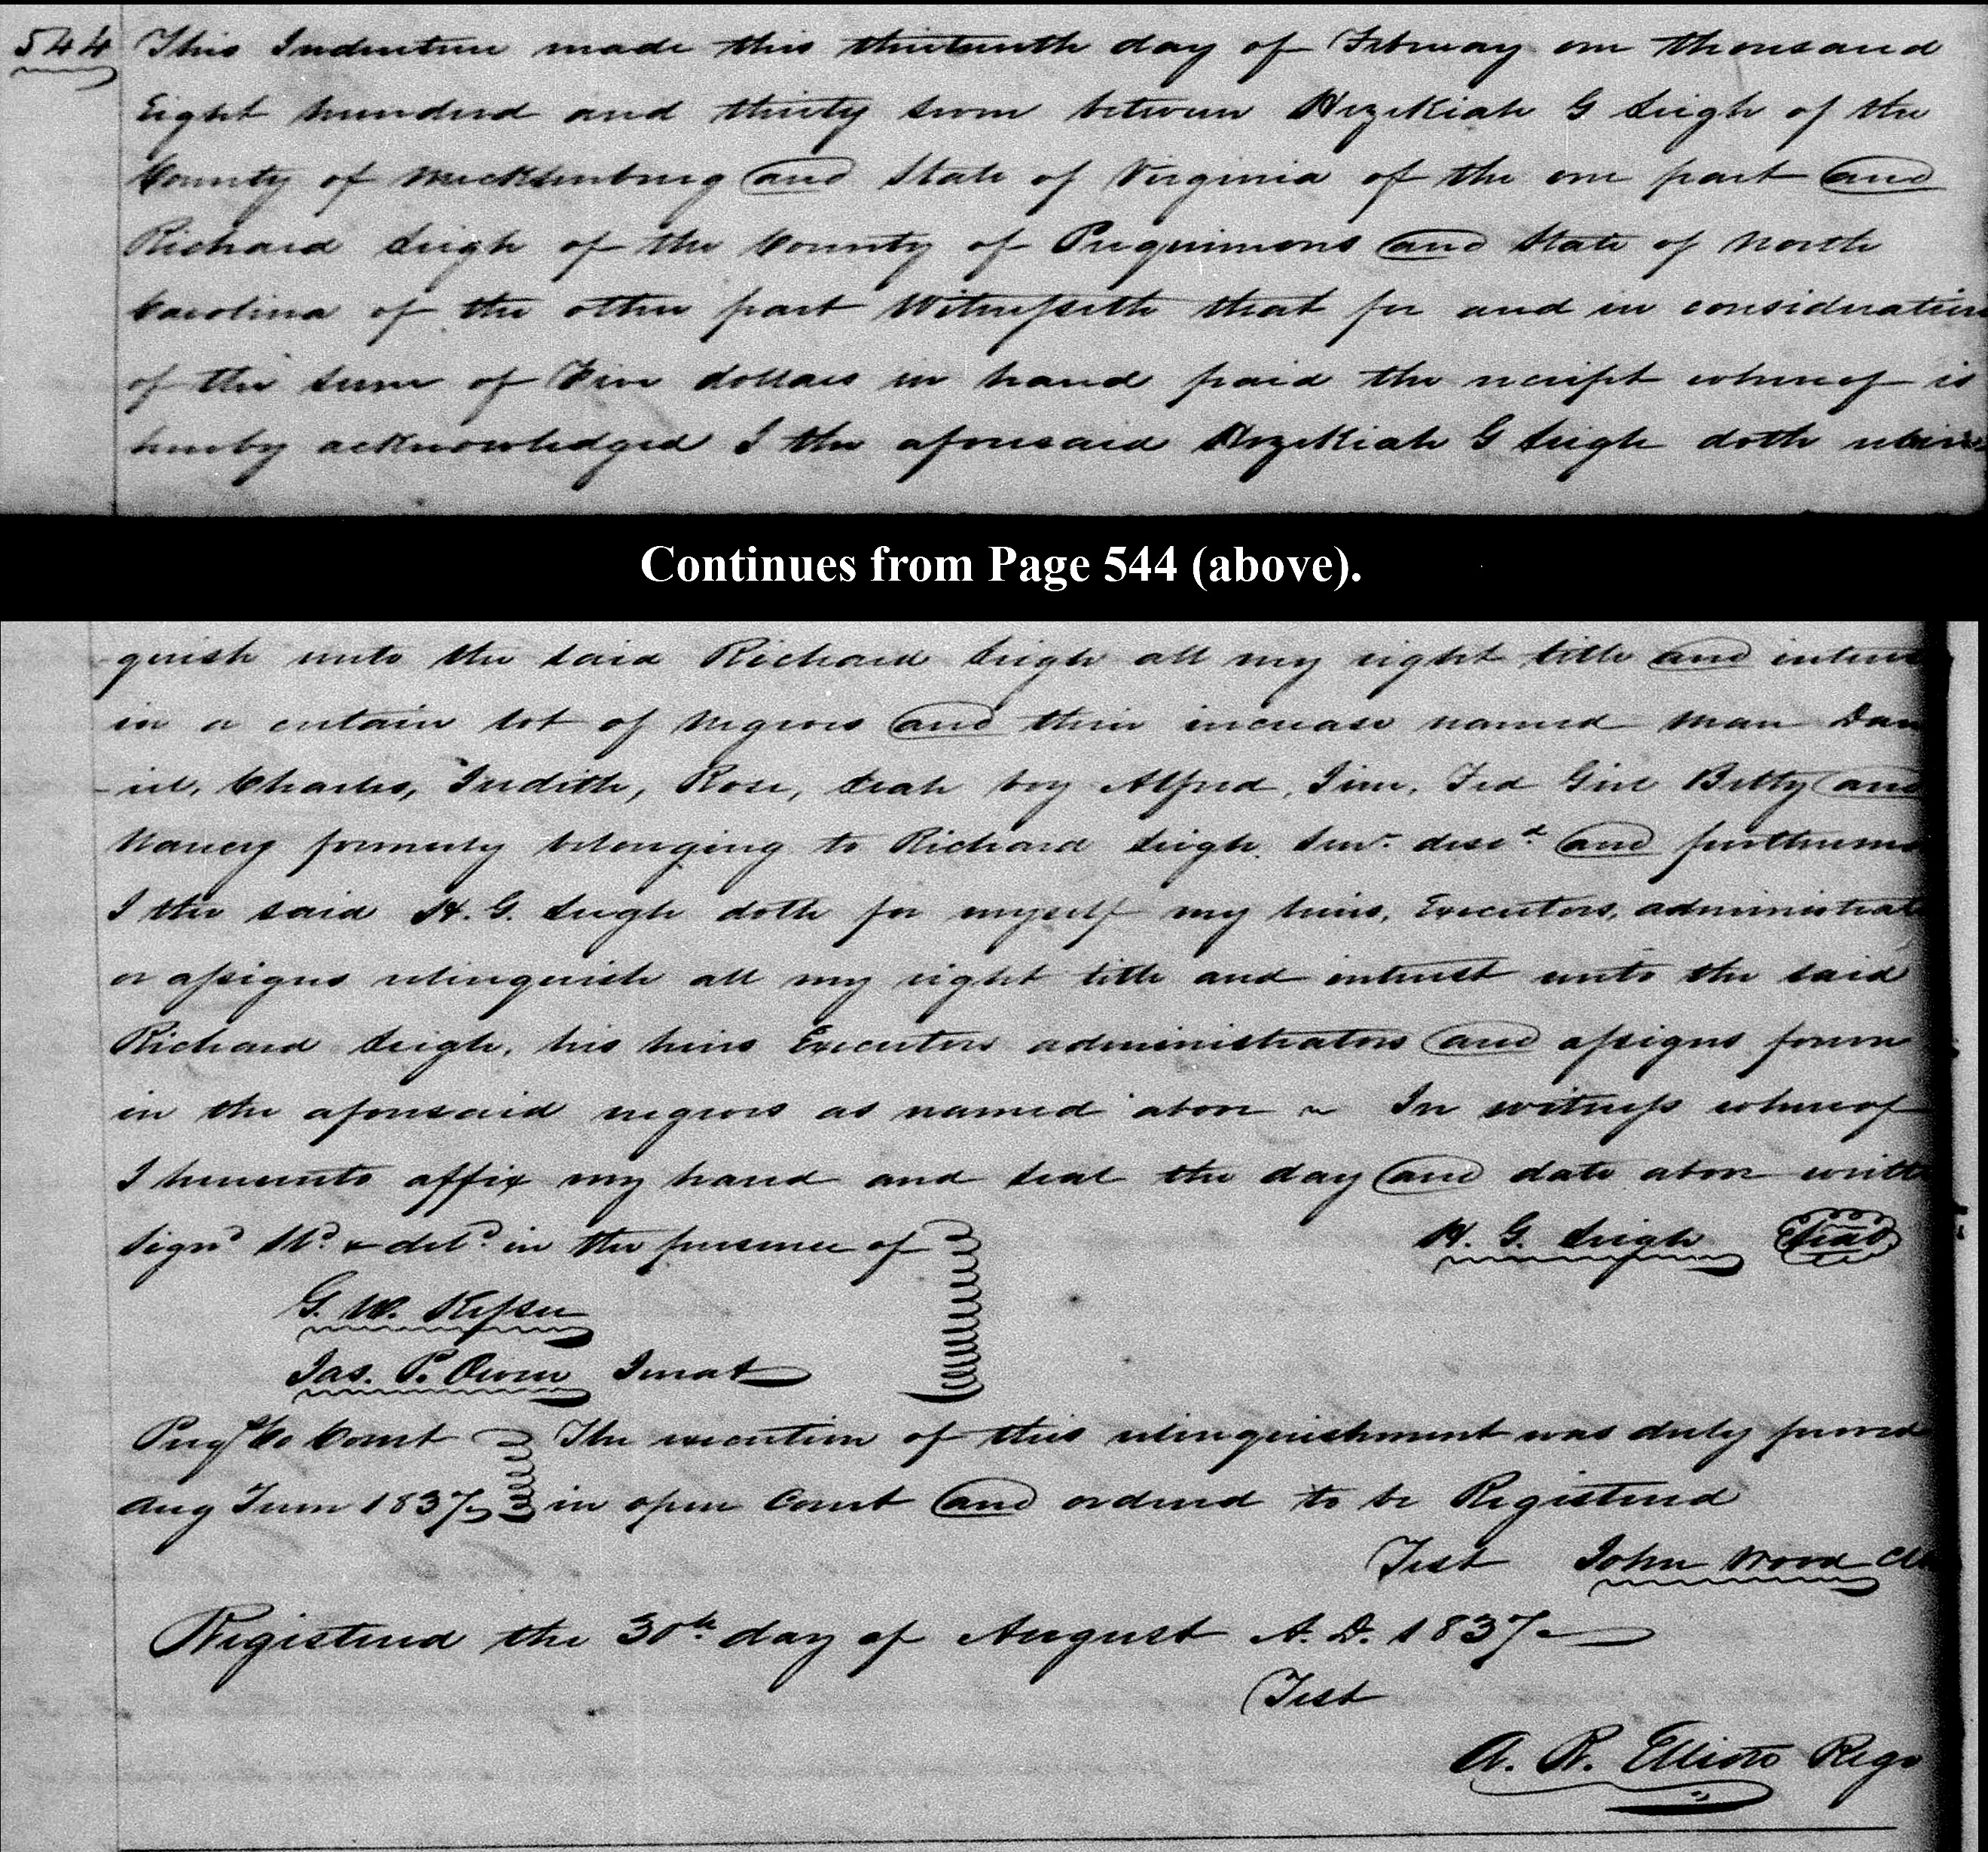 544 This Indenture made this thirteenth day of February one thousand
Eight hundred and thirty seven between Hezekiah G Leigh of the
County of Mecklenburg and State of Virginia of the one part and
Richard Leigh of the County of Perquimons and State of North
Carolina of the other part Witnesseth that for and in consideration
of the sum of Five dollars in hand paid the receipt whereof is
hereby acknowledged I the aforesaid Hezekiah G Leigh doth relin-
Continues from Page 544 (above).
-quish unto the said Richard Leigh all my right title and interest
in a certain lot of negroes and their increase named man Dan
-iel, Charles, Judith, Rose, Leah boy Alfred, Jim, Ted Girl Betty and
Nancy formerly belonging to Richard Leigh Senr. desd and furthermore
I the said H. G. Leigh doth for myself my heirs, Executors, administrat
or assigns relinquish all my right title and interest unto the said
Richard Leigh, his heirs Executors administrators and assigns forever
in the aforesaid negroes as named above ~ In witness whereof
I hereunto affix my hand and seal the day and date above written
Signd Sld & deld in the presence of H. G. Leigh Seal
G. W.
Jas. P. Owen Jurat
Perqs Co Court The execution of this relinquishment was duly proved
Aug Term 1837 in open Court and ordered to be Registered
Test John Wood Clk
Registered the 30th day of August A. D. 1837
Test
A. R. Elliott Regr